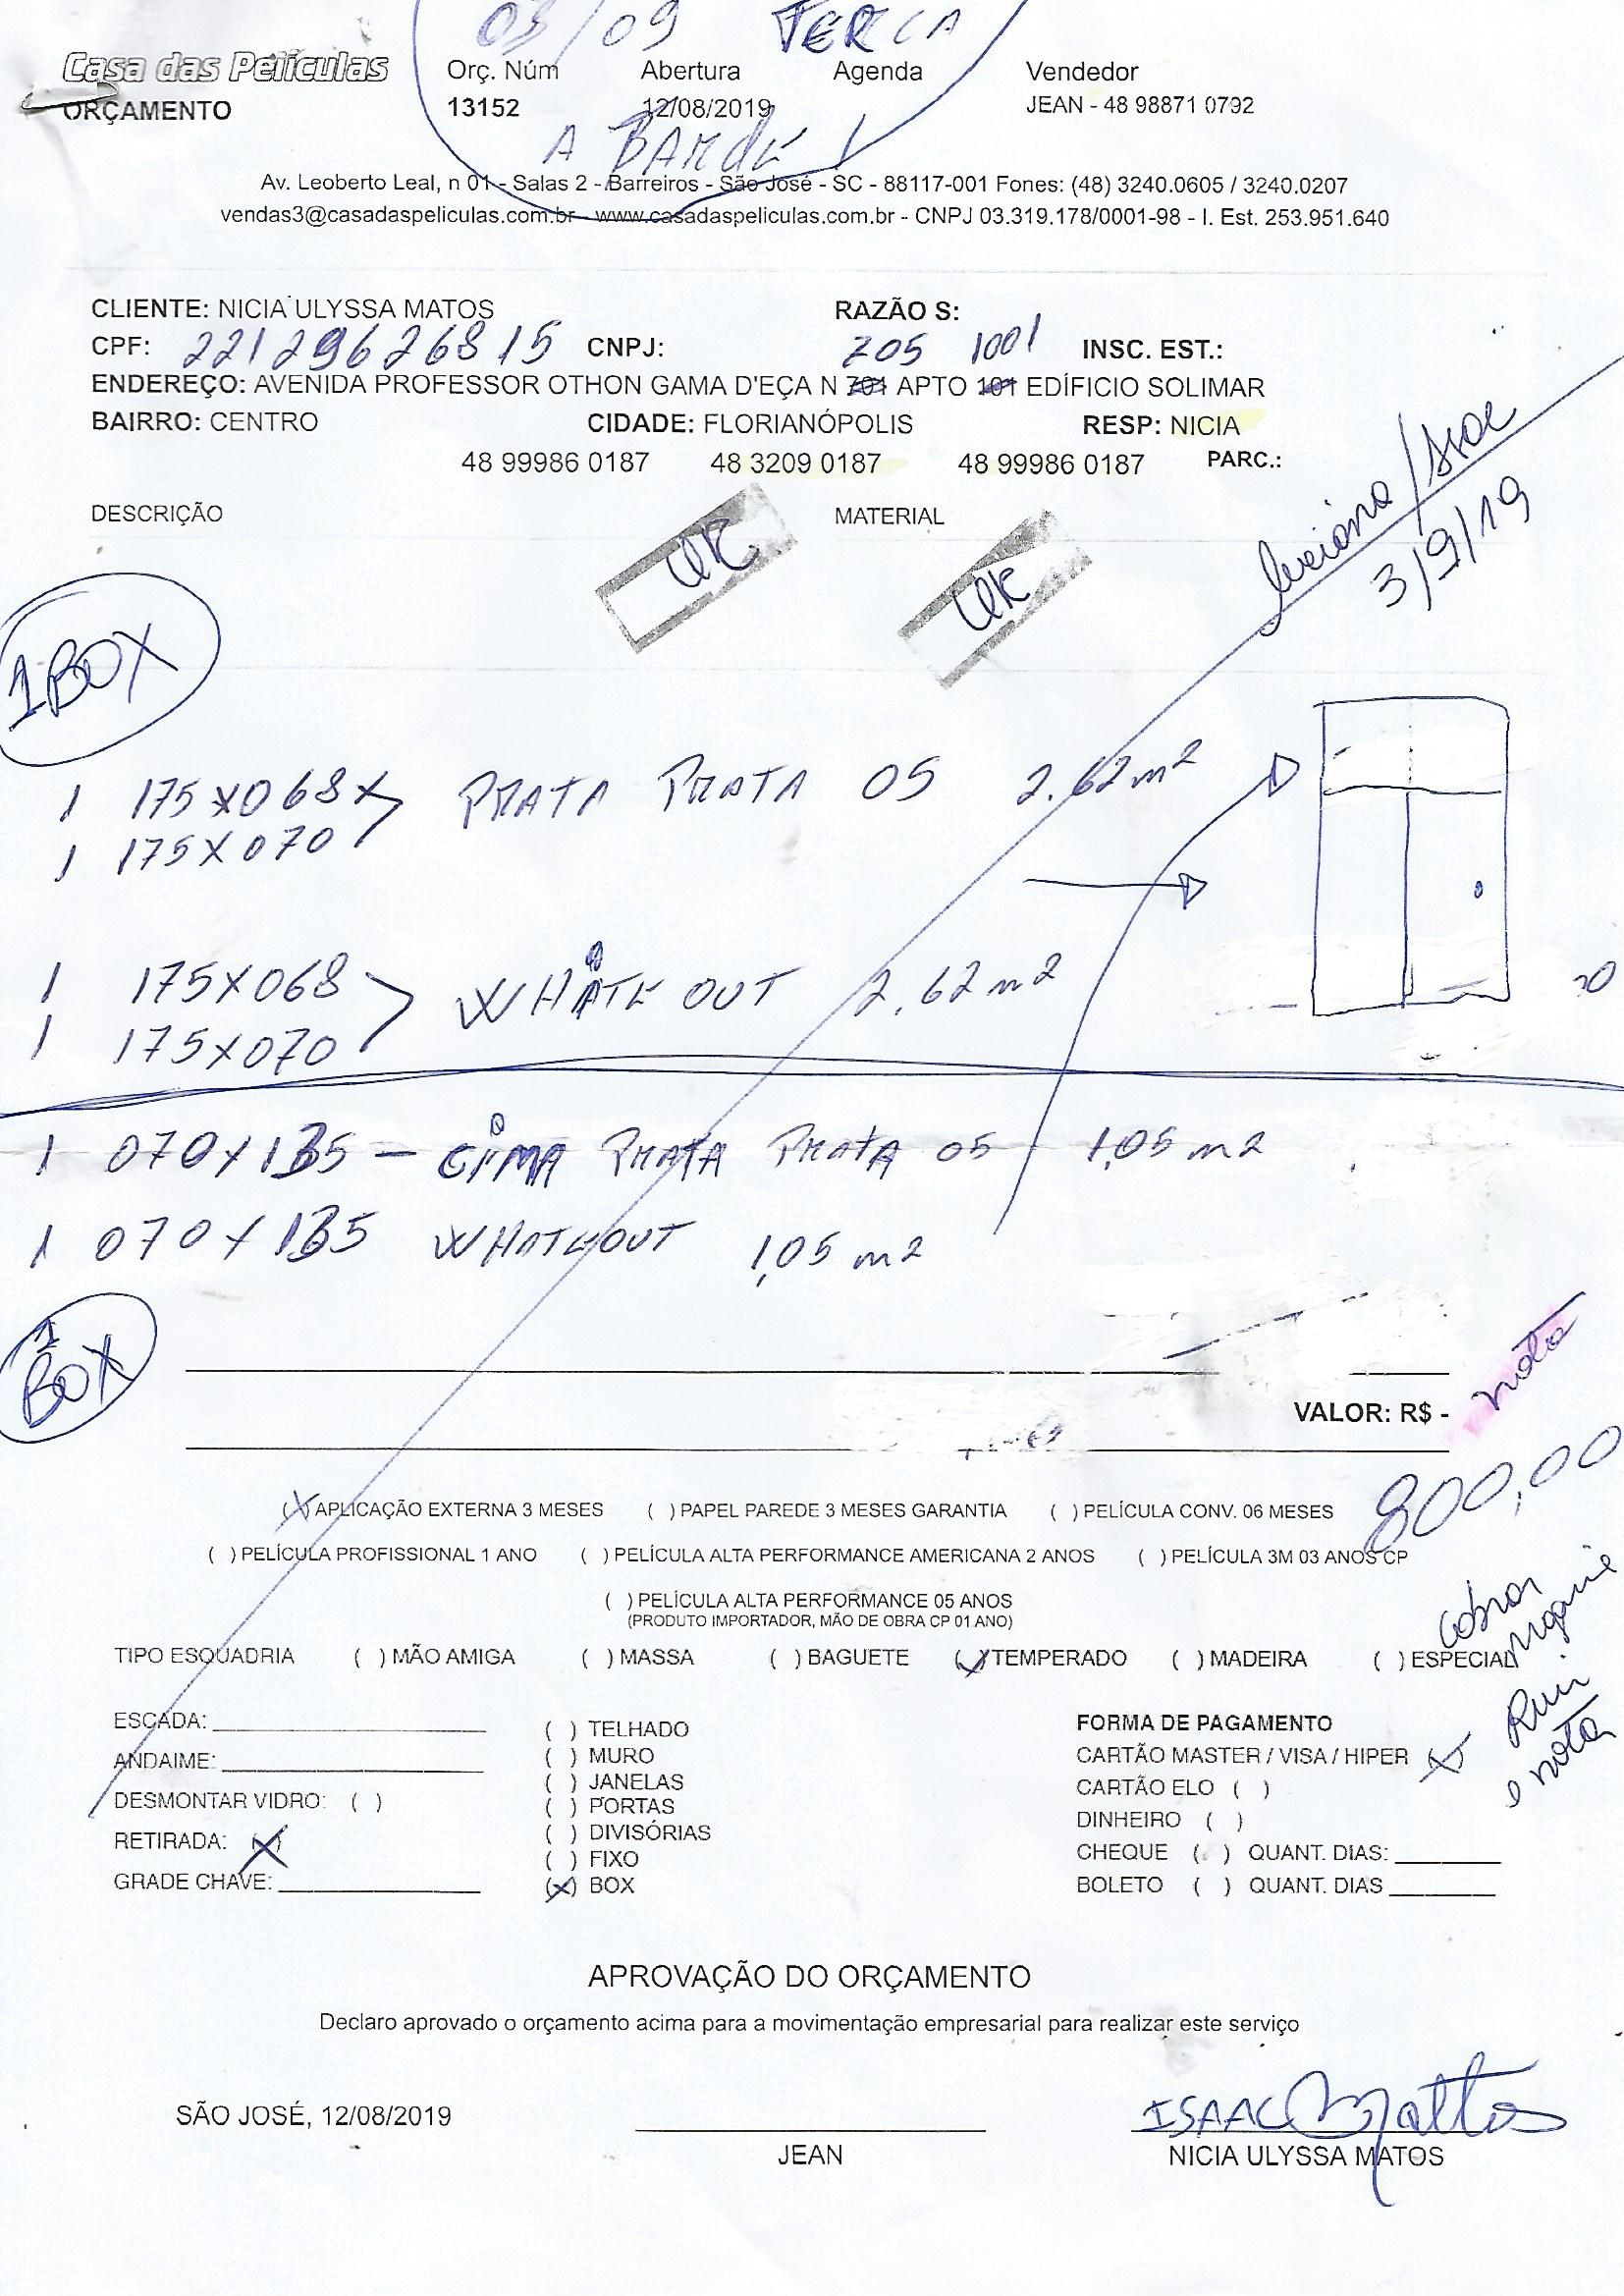 03/09 TERCA
Casa das Películas
ORÇAMENTO
Orç. Núm Abertura Agenda Vendedor
13152 12/08/2019 JEAN - 48 98871 0792
A TARDE
Av. Leoberto Leal, n 01 - Salas 2 - Barreiros - São José - SC - 88117-001 Fones: (48) 3240.0605 / 3240.0207
vendas3@casadaspeliculas.com.br - www.casadaspeliculas.com.br - CNPJ 03.319.178/0001-98 - I. Est. 253.951.640
CLIENTE: NICIA ULYSSA MATOS RAZÃO S:
CPF: 22129626815 CNPJ: 705 1001 INSC. EST.:
ENDEREÇO: AVENIDA PROFESSOR OTHON GAMA D'EÇA N 701 APTO 101 EDÍFICIO SOLIMAR
BAIRRO: CENTRO CIDADE: FLORIANÓPOLIS RESP: NICIA
48 99986 0187 48 3209 0187 48 99986 0187 PARC.:
DESCRIÇÃO MATERIAL
3/9/19
OK OK
1 BOX
1 175X068 PRATA PRATA 05 2.62m2
1 175X070
1 175X068 WHATE OUT 2,62m2
1 175X070
1 070X135 - CIMA PRATA PRATA 05 1,05 m2
1 070X135 WHATEOUT 1,05 m2
1 BOX
nota
VALOR: R$ -
800,00
(X) APLICAÇÃO EXTERNA 3 MESES ( ) PAPEL PAREDE 3 MESES GARANTIA ( ) PELÍCULA CONV. 06 MESES
( ) PELÍCULA PROFISSIONAL 1 ANO ( ) PELÍCULA ALTA PERFORMANCE AMERICANA 2 ANOS ( ) PELÍCULA 3M 03 ANOS CP
( ) PELÍCULA ALTA PERFORMANCE 05 ANOS
(PRODUTO IMPORTADOR, MÃO DE OBRA CP 01 ANO)
cobrar
TIPO ESQUADRIA ( ) MÃO AMIGA ( ) MASSA ( ) BAGUETE (X) TEMPERADO ( ) MADEIRA ( ) ESPECIAL
e nota
ESCADA: ( ) TELHADO FORMA DE PAGAMENTO
ANDAIME: ( ) MURO CARTÃO MASTER / VISA / HIPER X
( ) JANELAS CARTÃO ELO ( )
DESMONTAR VIDRO: ( ) ( ) PORTAS DINHEIRO ( )
RETIRADA: (X) ( ) DIVISÓRIAS CHEQUE ( ) QUANT. DIAS:
( ) FIXO
GRADE CHAVE: (X) BOX BOLETO ( ) QUANT. DIAS
APROVAÇÃO DO ORÇAMENTO
Declaro aprovado o orçamento acima para a movimentação empresarial para realizar este serviço
ISAAC Mattos
SÃO JOSÉ, 12/08/2019
JEAN NICIA ULYSSA MATOS